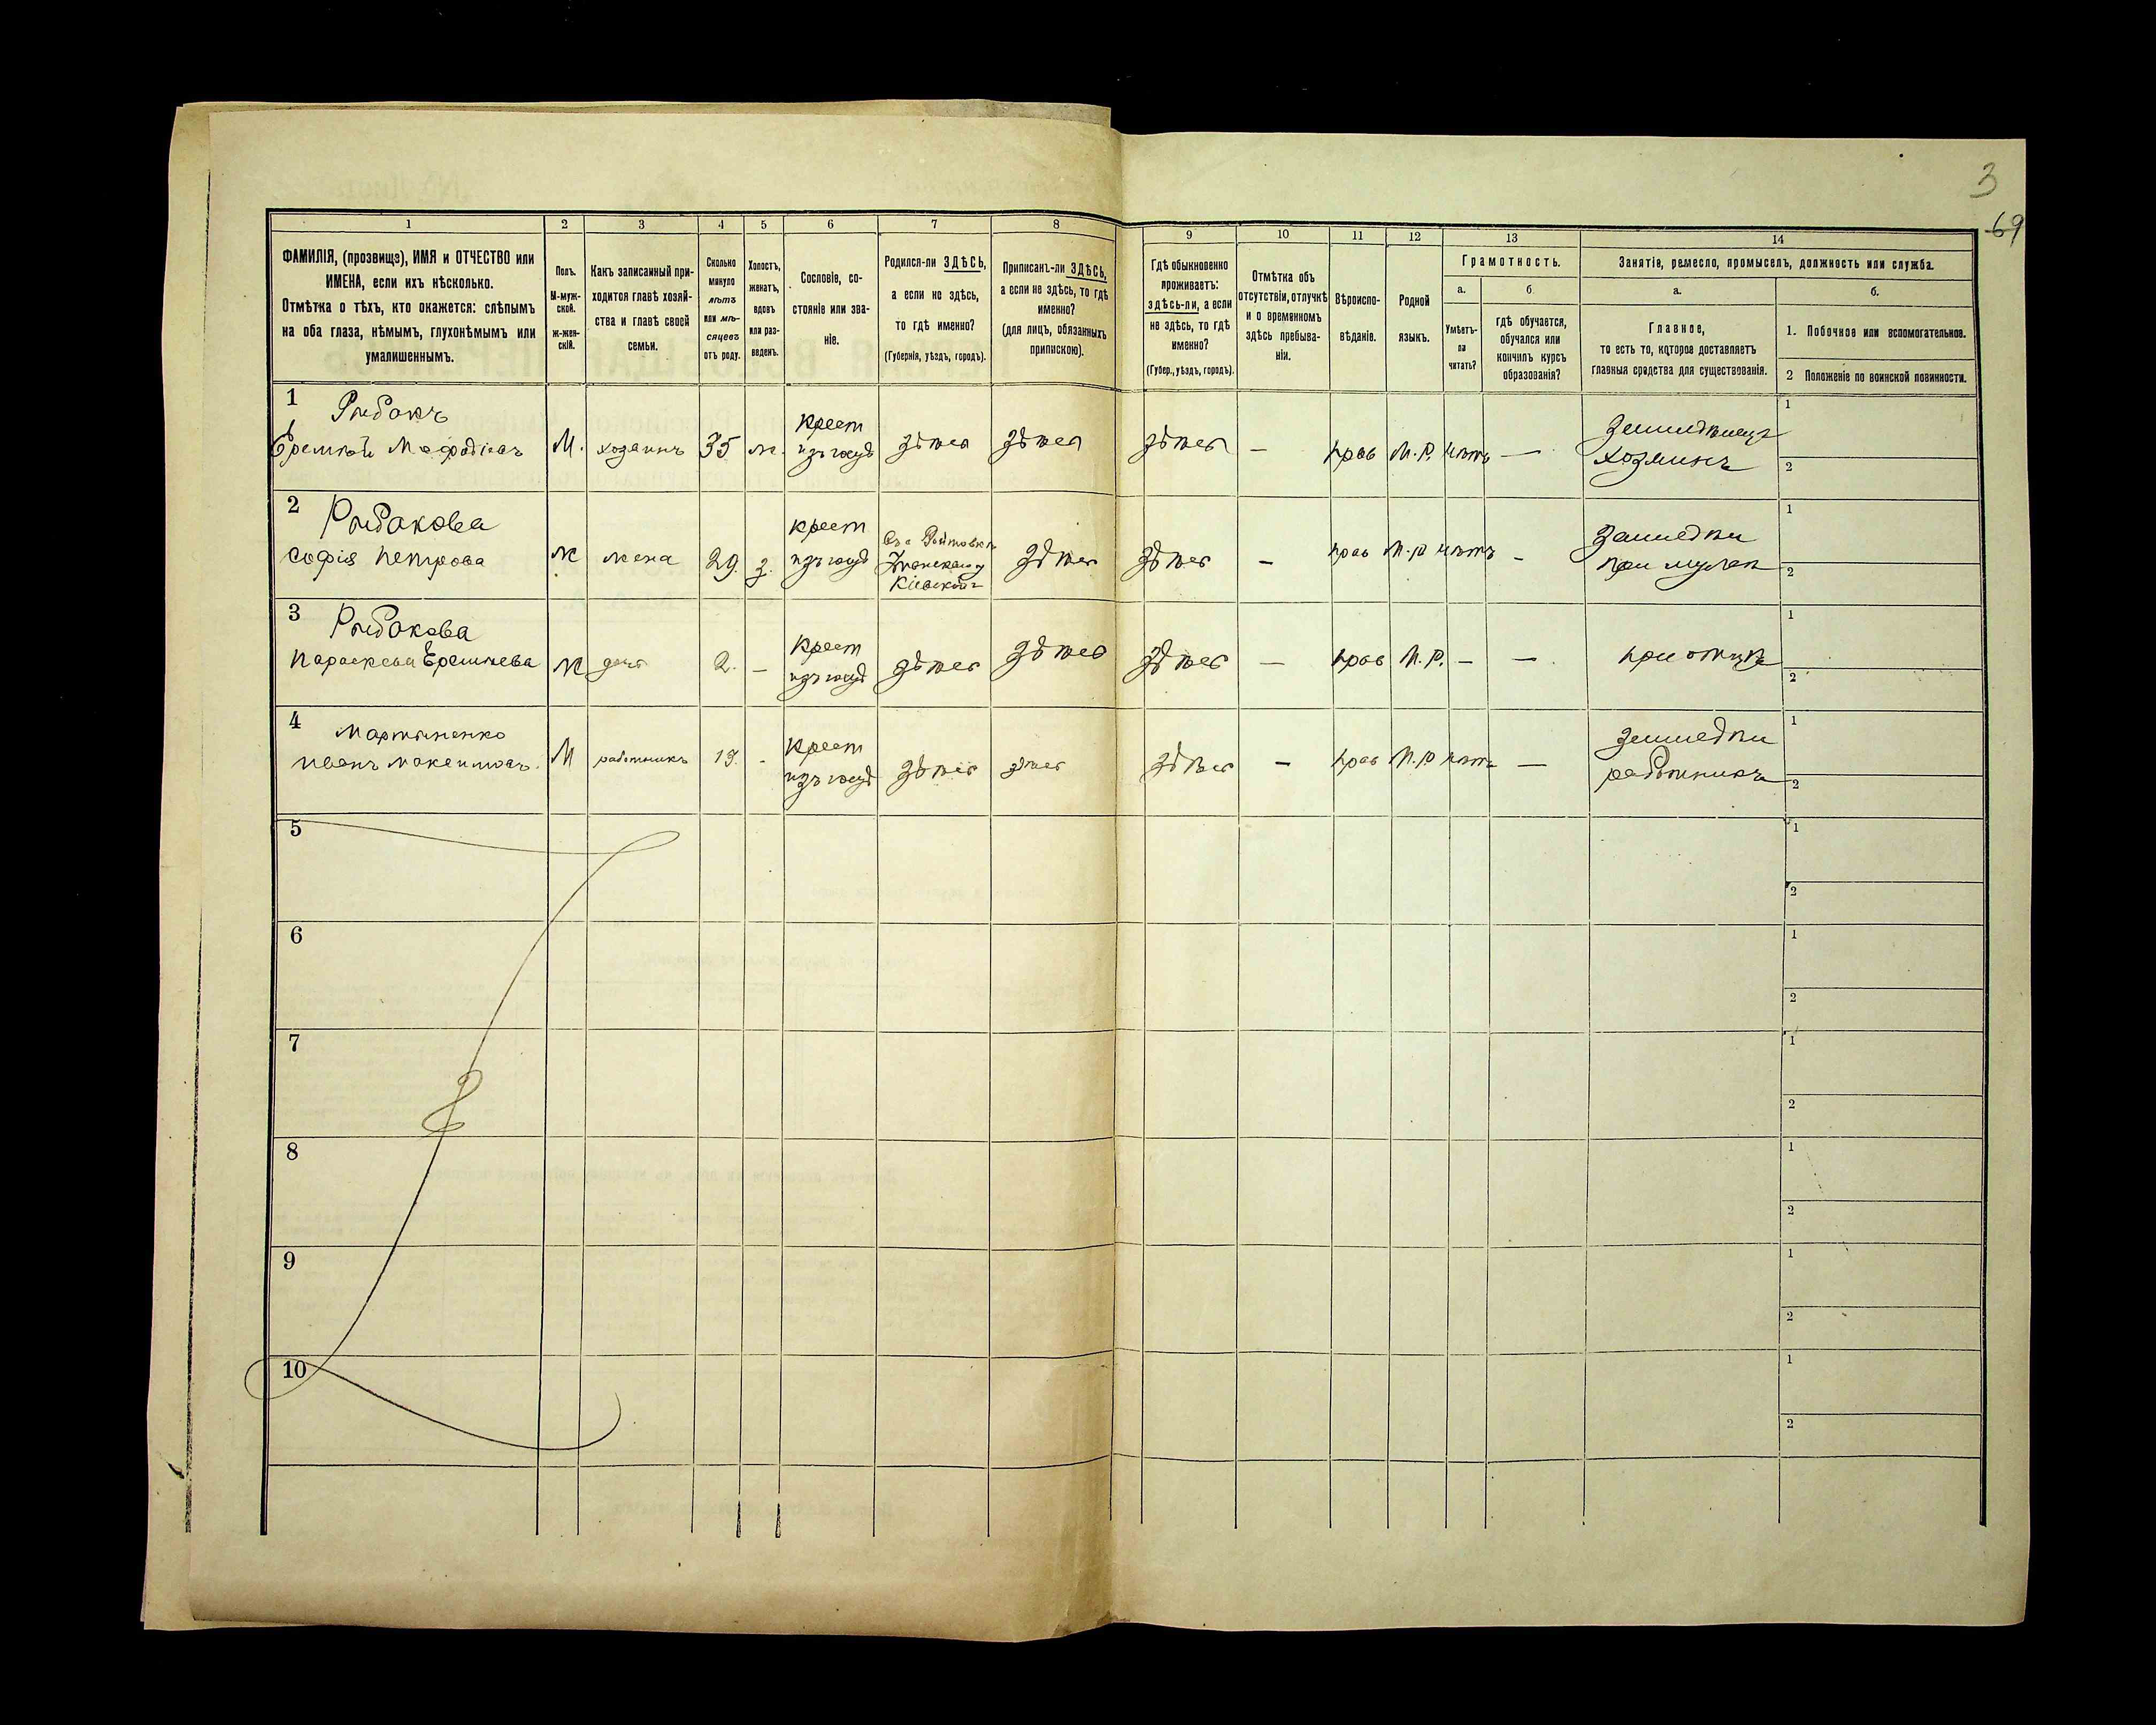 3
69
1 2 3 4 5 6 7 8 9 10 11 12 13 14
ФАМИЛІЯ, (прозвище), ИМЯ и ОТЧЕСТВО или
ИМЕНА, если ихъ нѣсколько.
Отмѣтка о тѣхъ, кто окажется: слѣпымъ
на оба глаза, нѣмымъ, глухонѣмымъ или
умалишеннымъ.
Полъ.
М-муж-
ской.
ж-жен-
скій.
Какъ записанный при-
ходится главѣ хозяй-
ства и главѣ своей
семьи.
Сколько
минуло
лѣтъ
или мѣ-
сяцевъ
отъ роду.
Холостъ,
женатъ,
вдовъ
или раз-
веденъ.
Сословіе, со-
стояніе или зва-
ніе.
Родился-ли ЗДѢСЬ,
а если не здѣсь,
то гдѣ именно?
(Губернія, уѣздъ, городъ).
Приписанъ-ли ЗДѢСЬ,
а если не здѣсь, то гдѣ
именно?
(для лицъ, обязанныхъ
припискою).
Гдѣ обыкновенно
проживаетъ:
здѣсь-ли, а если
не здѣсь, то гдѣ
именно?
(Губер., уѣздъ, городъ).
Отмѣтка объ
отсутствіи, отлучкѣ
и о временномъ
здѣсь пребыва-
ніи.
Вѣроиспо-
вѣданіе.
Родной
языкъ.
Грамотность.
а.
Умѣетъ-
ли
читать?
б
гдѣ обучается,
обучался или
кончилъ курсъ
образованія?
Занятіе, ремесло, промыселъ, должность или служба.
а.
Главное,
то есть то, которое доставляетъ
главныя средства для существованія.
б.
1. Побочное или вспомогательное.
2 Положеніе по воинской повинности.
1 Рыбакъ
М. хозяинъ 35 ж. крест здѣсь здѣсь здѣсь — прав М.Р. нѣтъ —
хозяинъ
1
2
2 Рыбакова
софія петрова ж жена 29. з. крест
здѣсь здѣсь — прав М.Р нѣтъ —
1
2
3 Рыбакова
параскева ж дочь 2. — крест здѣсь здѣсь здѣсь — прав М.Р. — —. при отцѣ
1
2
4 Мартыненко
иванъ М работникъ 19. - крест здѣсь здѣсь здѣсь — прав М.Р нѣтъ —
работникъ
1
2
5
1
2
6
1
2
7
1
2
8
1
2
9
1
2
10
1
2